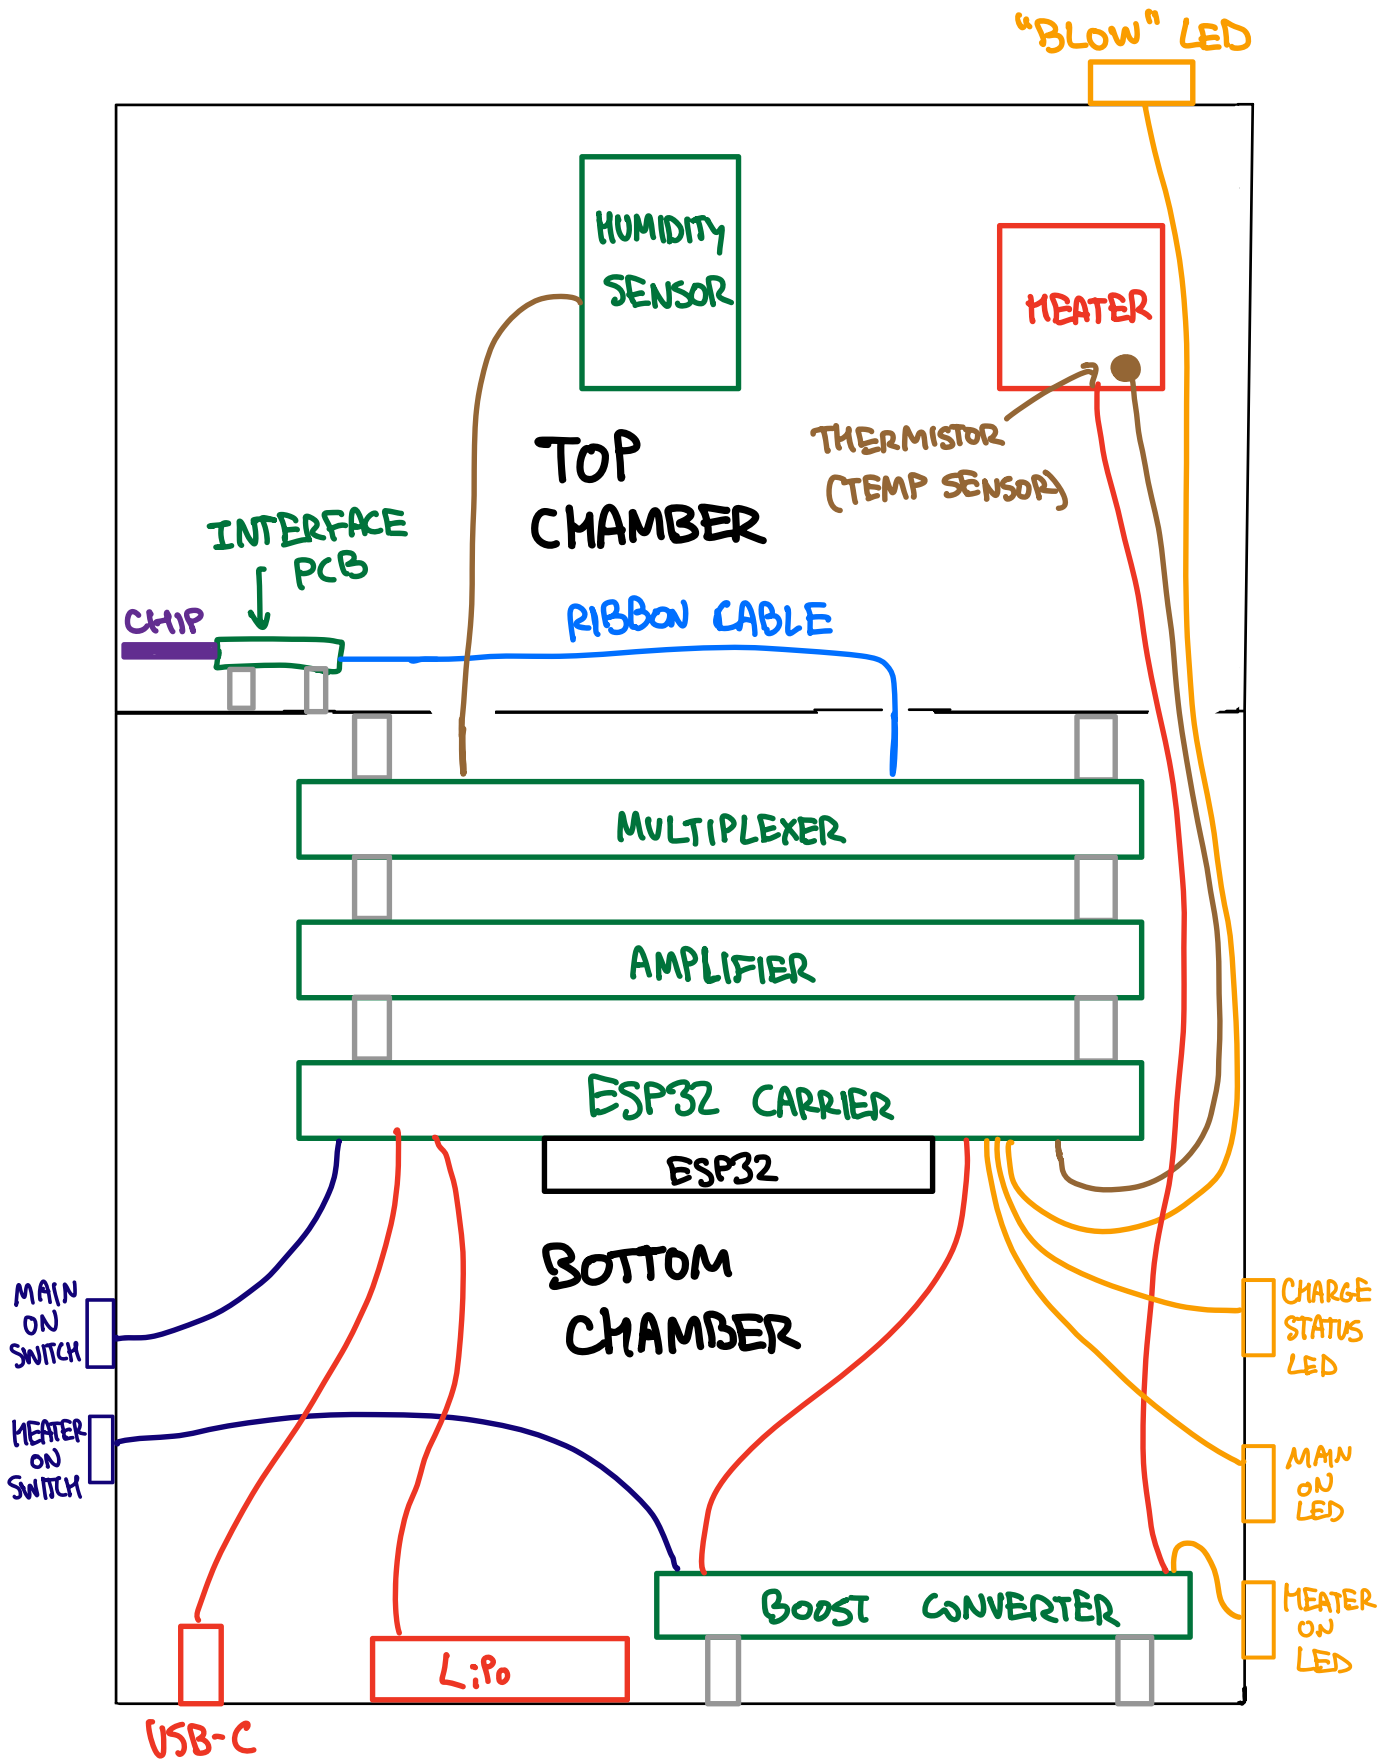 "BLOW" LED
HUMIDITY
SENSOR
HEATER
THERMISTOR
(TEMP SENSOR)
TOP
CHAMBER
INTERFACE
PCB
CHIP
RIBBON CABLE
MULTIPLEXER
AMPLIFIER
ESP32 CARRIER
ESP32
BOTTOM
CHAMBER
MAIN
ON
SWITCH
HEATER
ON
SWITCH
CHARGE
STATUS
LED
MAIN
ON
LED
HEATER
ON
LED
BOOST CONVERTER
LiPo
USB-C